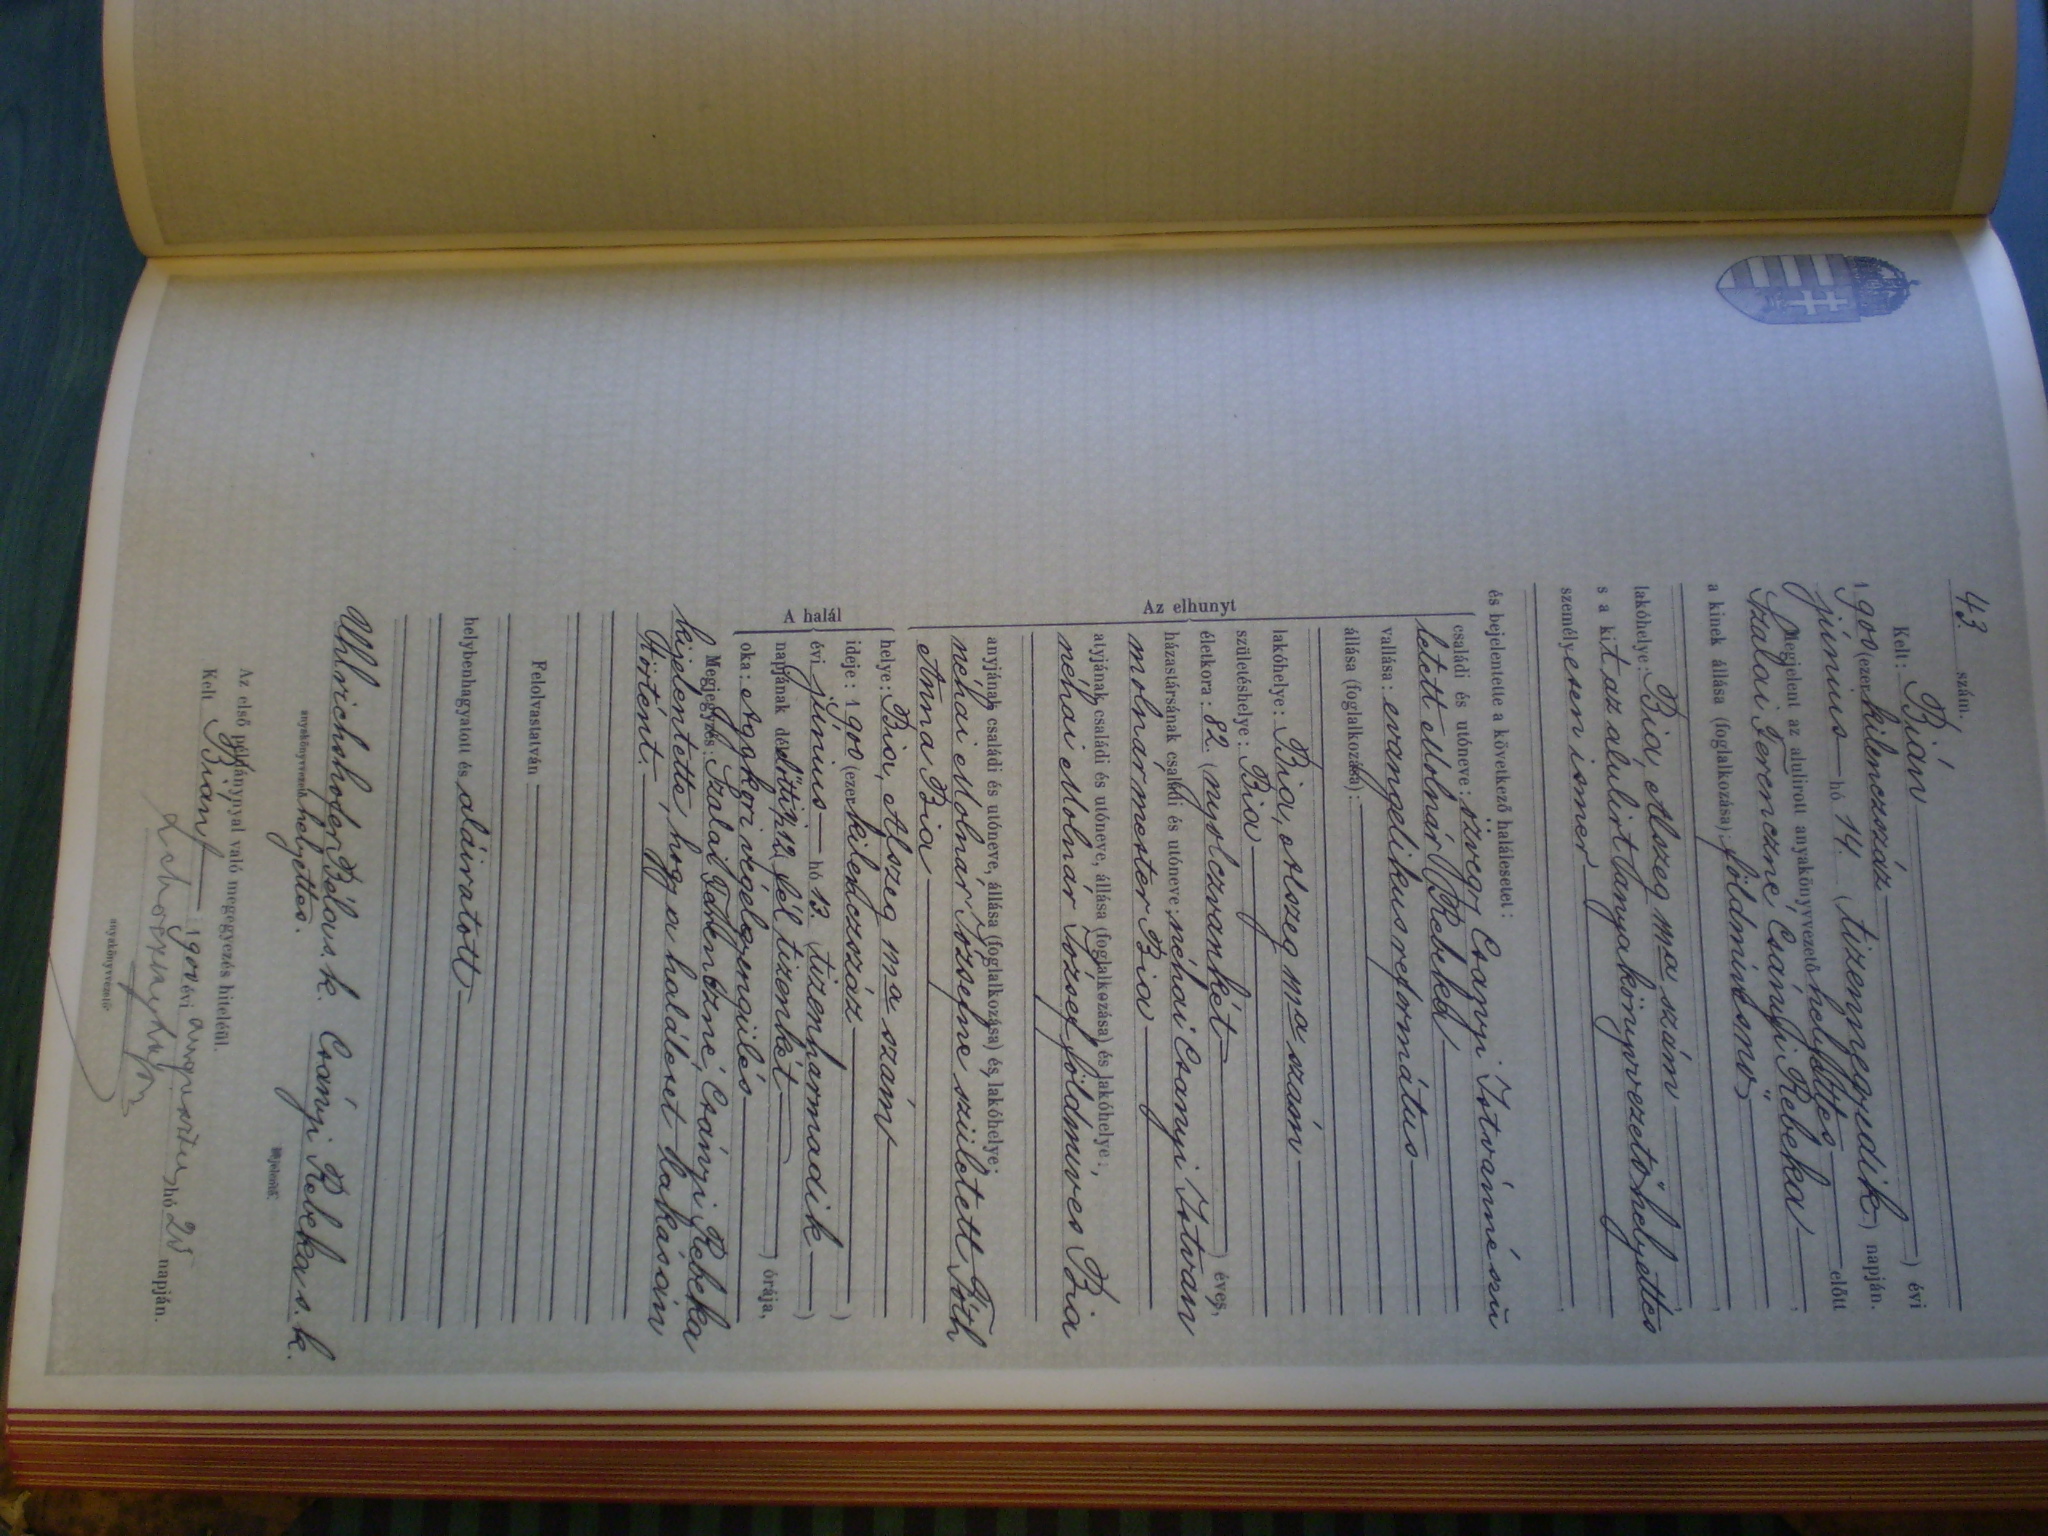 43. szám.
Kelt: Bián, 
1900 (ezer kilenczszáz) évi
június hó 14. (tizennegyedik) napján.
Megjelent az alulirott anyakönyvvezető helyettes előtt
Szalai Ferenczné, Csányi Rebeka,
a kinek állása (foglalkozása): földmívesnő,
lakóhelye: Bia, Alszeg 112 szám
s a kit az alulirt anyakönyvvezető helyettes
személyesen ismer,
és bejelentette a következő halálesetet:
Az elhunyt
családi és utóneve: özvegy Csanyi Istvánné szü
letett Molnár Rebeka
vallása: evangelikus református
állása (foglalkozása):
lakóhelye: Bia, Alszeg 112 szám
születéshelye: Bia
életkora: 82. (nyolczvankét) éves,
házastársának családi és utóneve: néhai Csanyi István
molnármester Bia
atyjának családi és utóneve, állása (foglalkozása) és lakóhelye:
néhai Molnár József földmives Bia
anyjának családi és utóneve, állása (foglalkozása) és lakóhelye:
néhai Molnár Józsefné született Tóth
Anna Bia
A halál
helye: Bia, Alszeg 112 szám
ideje: 1900 (ezer kilenczszáz)
évi június hó 13. (tizenharmadik)
napjának délelőtti ½12 (fél tizenkét) órája,
oka: Agskori végelgyengülés
Megjegyzés: Szalai Ferenczné, Csányi Rebeka
kijelentette, hogy a haláleset lakásán
történt.
Felolvastatván
helybenhagyatott és aláiratott
Uhlrichshofer Béla s. k. Csányi Rebeka s. k.
anyakönyvvezető helyettes. bejelentő.
Az első példánynyal való megegyezés hiteléül.
Kelt Bián, 1900 évi augusztus hó 25 napján.
anyakönyvvezető